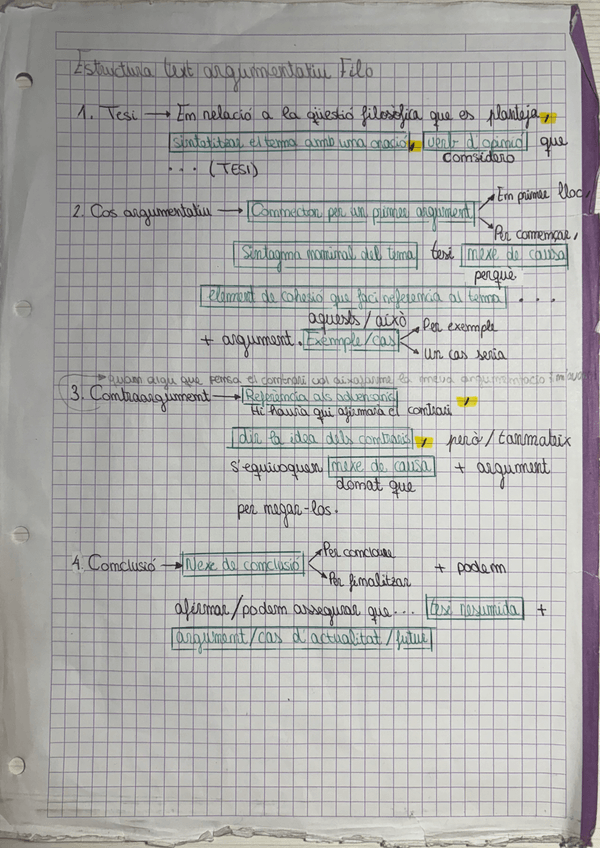 Estructura text argumentatiu Filo
1. Tesi → Em relació a la qüestió filosòfica que es planteja,
sintatitzar el tema amb una oració, verb d'opinió que
considero
... (TESI)
2. Cos argumentatiu → Connector per un primer argument → Em primer lloc,
→ Per començar,
Sintagma nominal del tema tesi nexe de causa
perquè
element de cohesió que faci referència al tema ...
aquests/això
+ argument. Exemple/cas → Per exemple
→ Un cas seria
→ quan algú que pensa el contrari vol aixafar-me la meva argumentació i m'
3. Contraargument → Referència als adversaris
Hi haurà qui afirmarà el contrari,
dir la idea dels contraris, però/tanmateix
s'equivoquen nexe de causa + argument
donat que
per negar-los.
4. Conclusió → Nexe de conclusió → Per concloure
→ Per finalitzar
+ podem
afirmar/podem assegurar que... tesi resumida +
argument/cas d'actualitat/futur